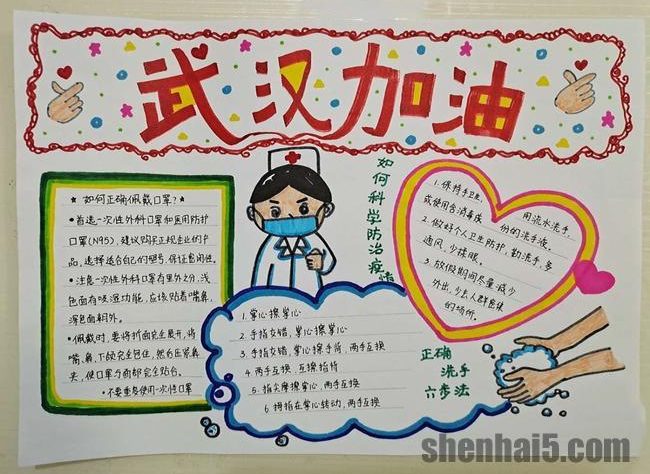 武汉加油
★如何正确佩戴口罩?★
•首选一次性外科口罩和医用防护
口罩(N95),建议购买正规企业的产
品,选择适合自己的型号,保证密闭性。
•注意一次性外科口罩有里外之分,浅
色面有吸湿功能,应该贴着嘴鼻,
深色面朝外。
•佩戴时,要将折面完全展开,将
嘴、鼻、下颌完全包住,然后压紧鼻
夹,使口罩与面部完全贴合。
•不要重复使用一次性口罩
如何科学防治疫情
1.保持手卫生,用流水洗手,
或使用含消毒成份的洗手液。
2.做好个人卫生防护,勤洗手,多
通风,少揉眼。
3.放假期间尽量减少
外出,少去人群密集
的场所。
1.掌心擦掌心
2.手指交错,掌心擦掌心
3.手指交错,掌心擦手背,两手互换
4.两手互握,互擦指背
5.指尖摩擦掌心,两手互换
6拇指在掌心转动,两手互换
正确
洗手
六步法
shenhai5.com